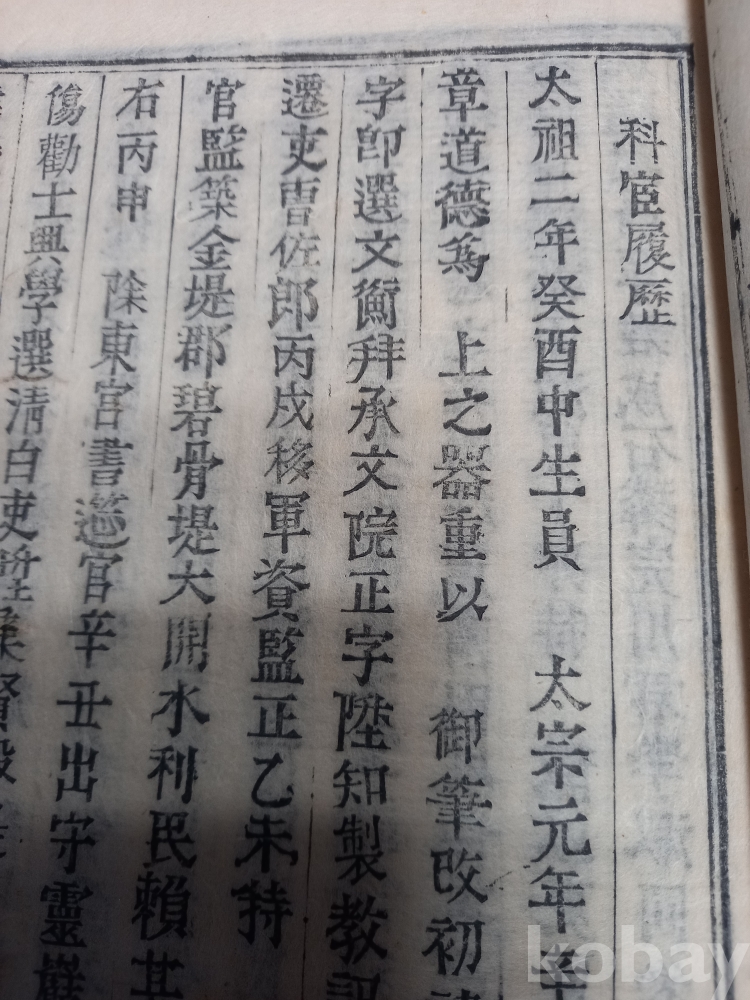 科宦履歷
太祖二年癸酉中生員 太宗元年辛
章道德爲 上之器重以 御筆改初
字卽選文衡拜承文院正字陞知製敎
遷吏曹佐郎丙戌移軍資監正乙未特
官監築金堤郡碧骨堤大開水利民賴其
右丙申 除東宮書筵官辛丑出守靈巖
傷勸士興學選淸白吏 賢殿
kobay